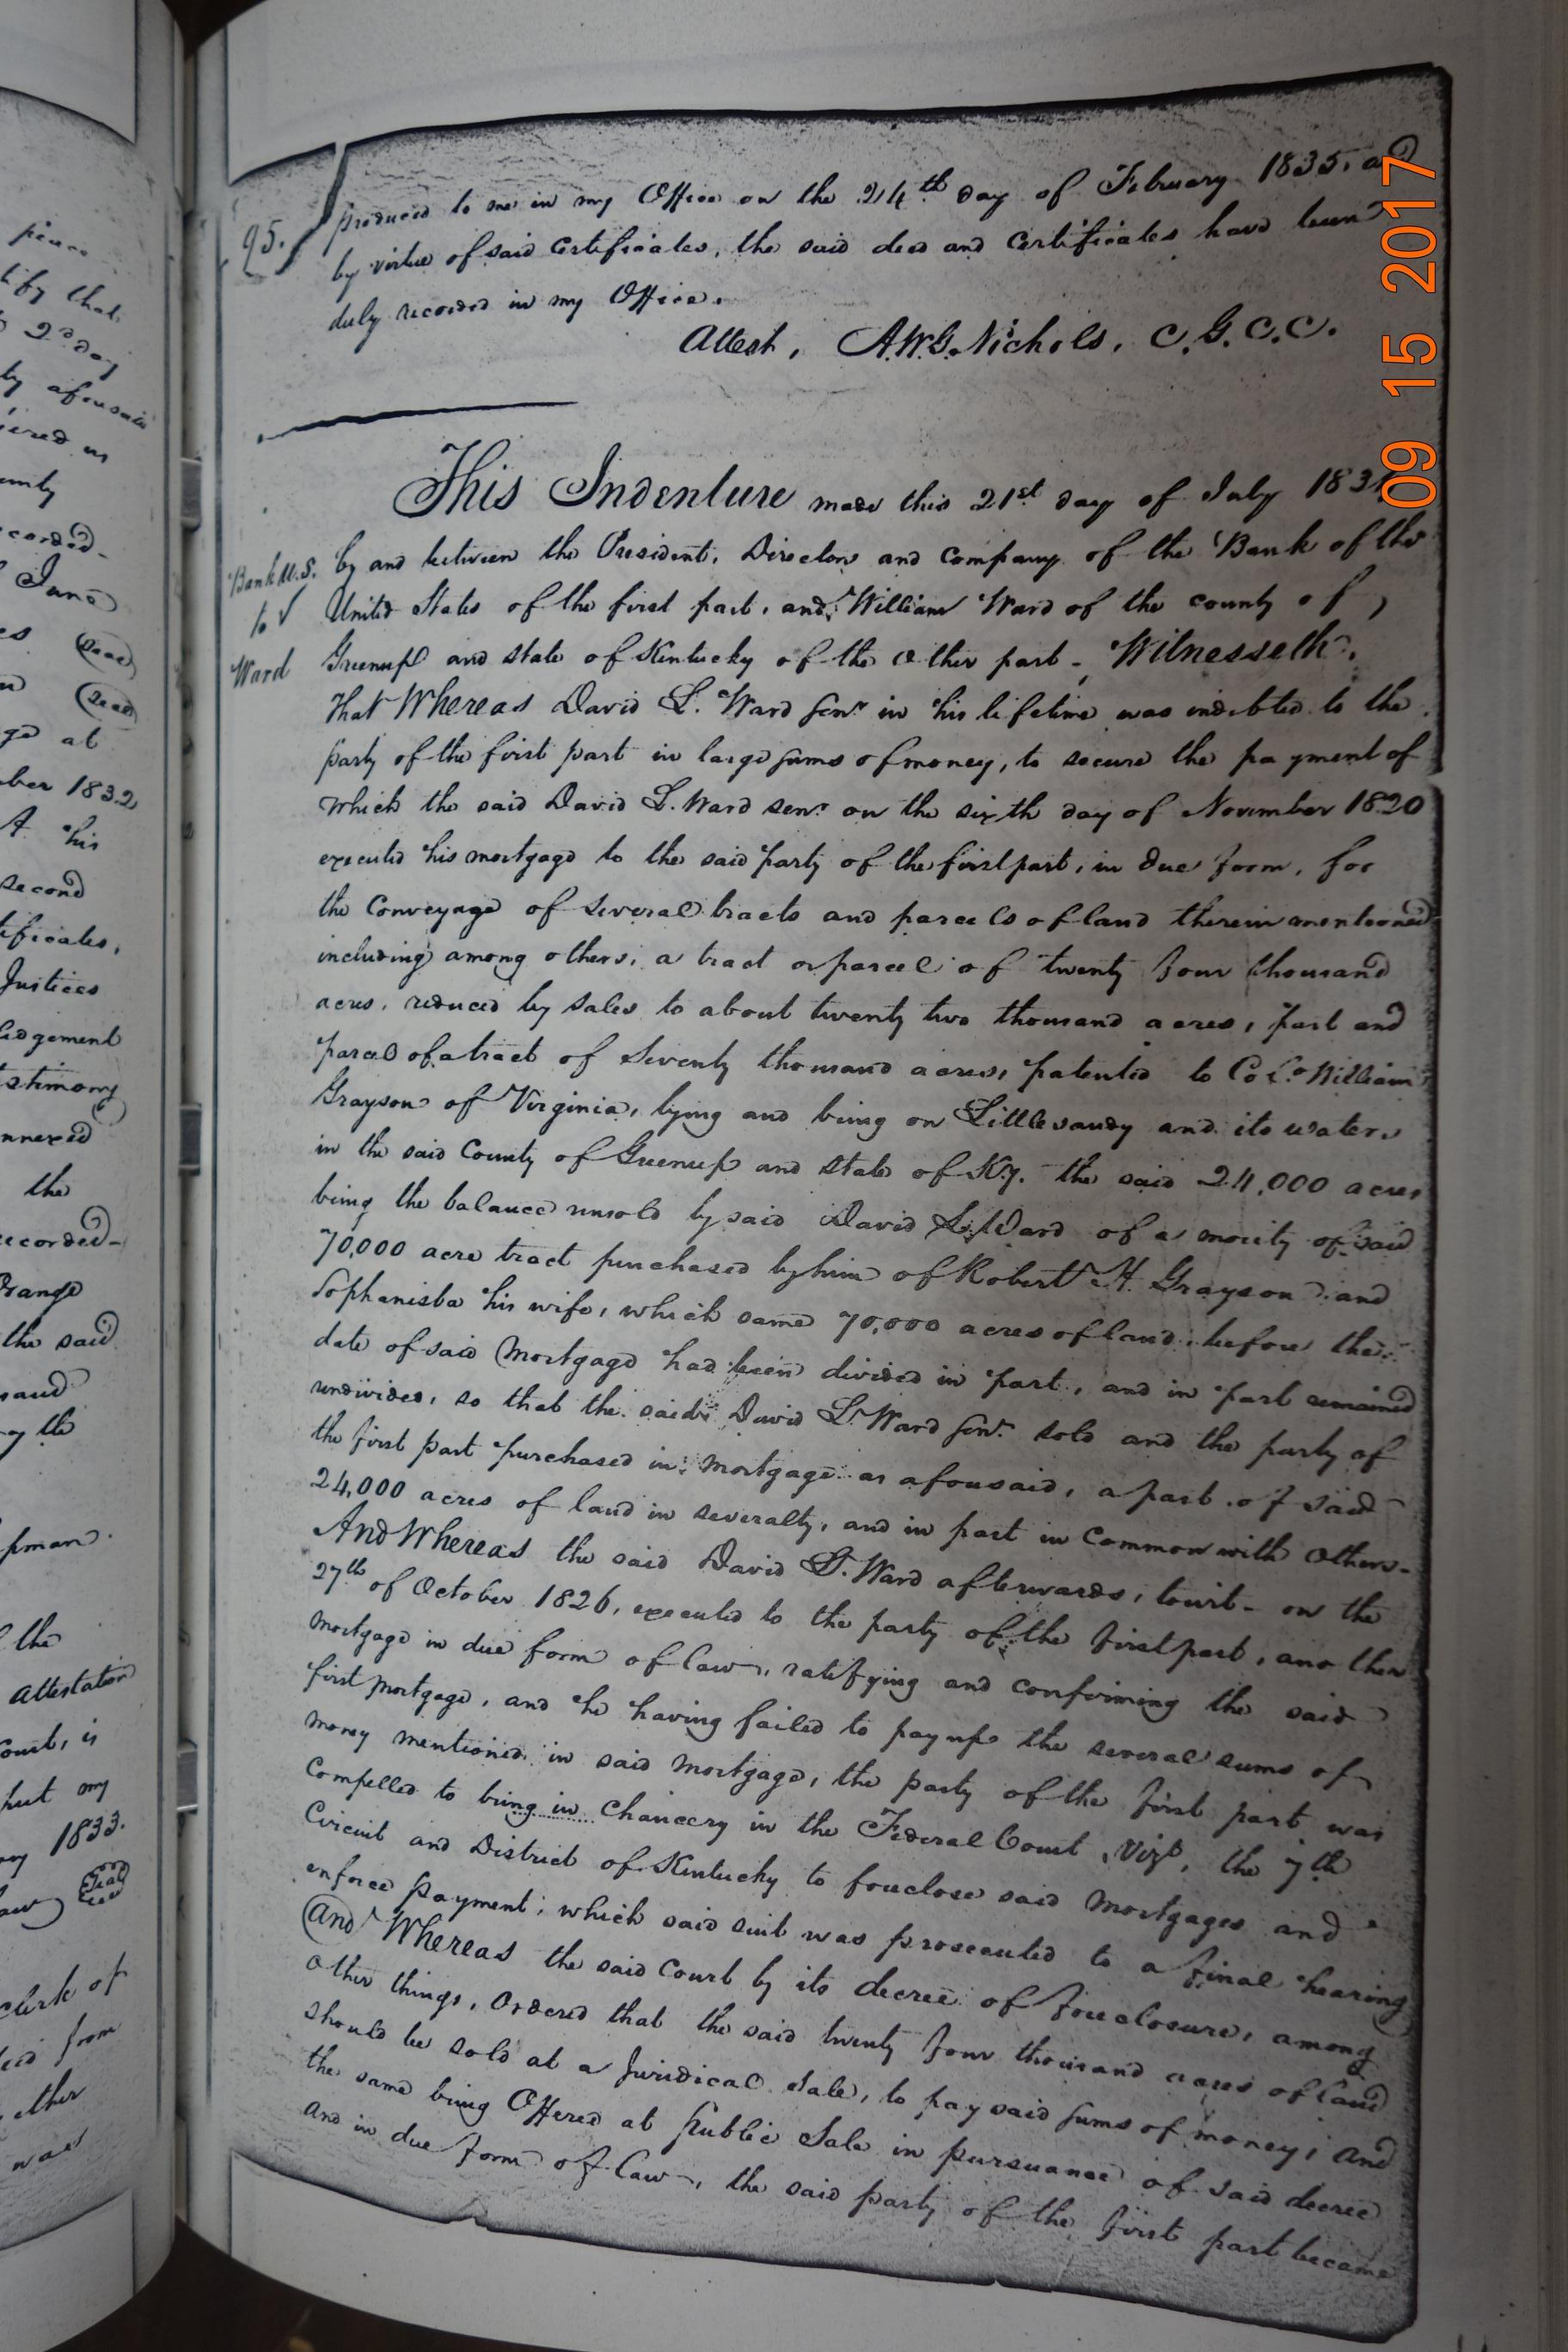 95.
produced to me in my Office on the 24th day of February 1835. and
by virtue of said certificates, the said deed and certificates have been
duly recorded in my Office.
Attest, A.W.G. Nichols, C.G.C.C.
This Indenture made this 21st day of July
Bank U.S.
to
Ward
by and between the President, Directors and Company of the Bank of the
United States of the first part, and William Ward of the county of
Greenup and state of Kentucky of the other part, Witnesseth,
that Whereas David L. Ward senr in his lifetime was indebted to the
party of the first part in large sums of money, to secure the payment of
which the said David L. Ward senr on the sixth day of November 1820
executed his mortgage to the said party of the first part, in due form, for
the Conveyage of several tracts and parcels of land therein mentioned
including among others, a tract or parcel of twenty four thousand
acres, reduced by sales to about twenty two thousand acres, part and
parcel of a tract of seventy thousand acres, patented to Colo William
Grayson of Virginia, lying and being on Littlesandy and its waters
in the said County of Greenup and state of Ky. the said 24,000 acres
being the balance unsold by said David L. Ward of a moiety of said
70,000 acre tract purchased by him of Robert H. Grayson and
Sophanisba his wife, which same 70,000 acres of land, before the
date of said Mortgage had been divided in part, and in part remained
undivided, so that the said David L. Ward senr sold and the party of
the first part purchased in mortgage as afousaid, a part of said
24,000 acres of land in severalty, and in part in Common with others.
And Whereas the said David L. Ward afterwards, towit- on the
27th of October 1826, executed to the party of the first part, another
mortgage in due form of law, ratifying and confirming the said
first mortgage, and he having failed to pay up the several sums of
money mentioned in said mortgage, the party of the first part was
Compelled to bring in Chancery in the Federal Court, Vizt, the 7th
Circuit and District of Kentucky to foreclose said mortgages and
enforce payment; which said suit was prosecuted to a final hearing
And Whereas the said Court by its decree of foreclosure, among
other things, Ordered that the said twenty four thousand acres of land
should be sold at a Juridical Sale, to pay said sums of money; and
the same being Offered at Public Sale in pursuance of said decree
and in due form of law, the said party of the first part became
09 15 2017